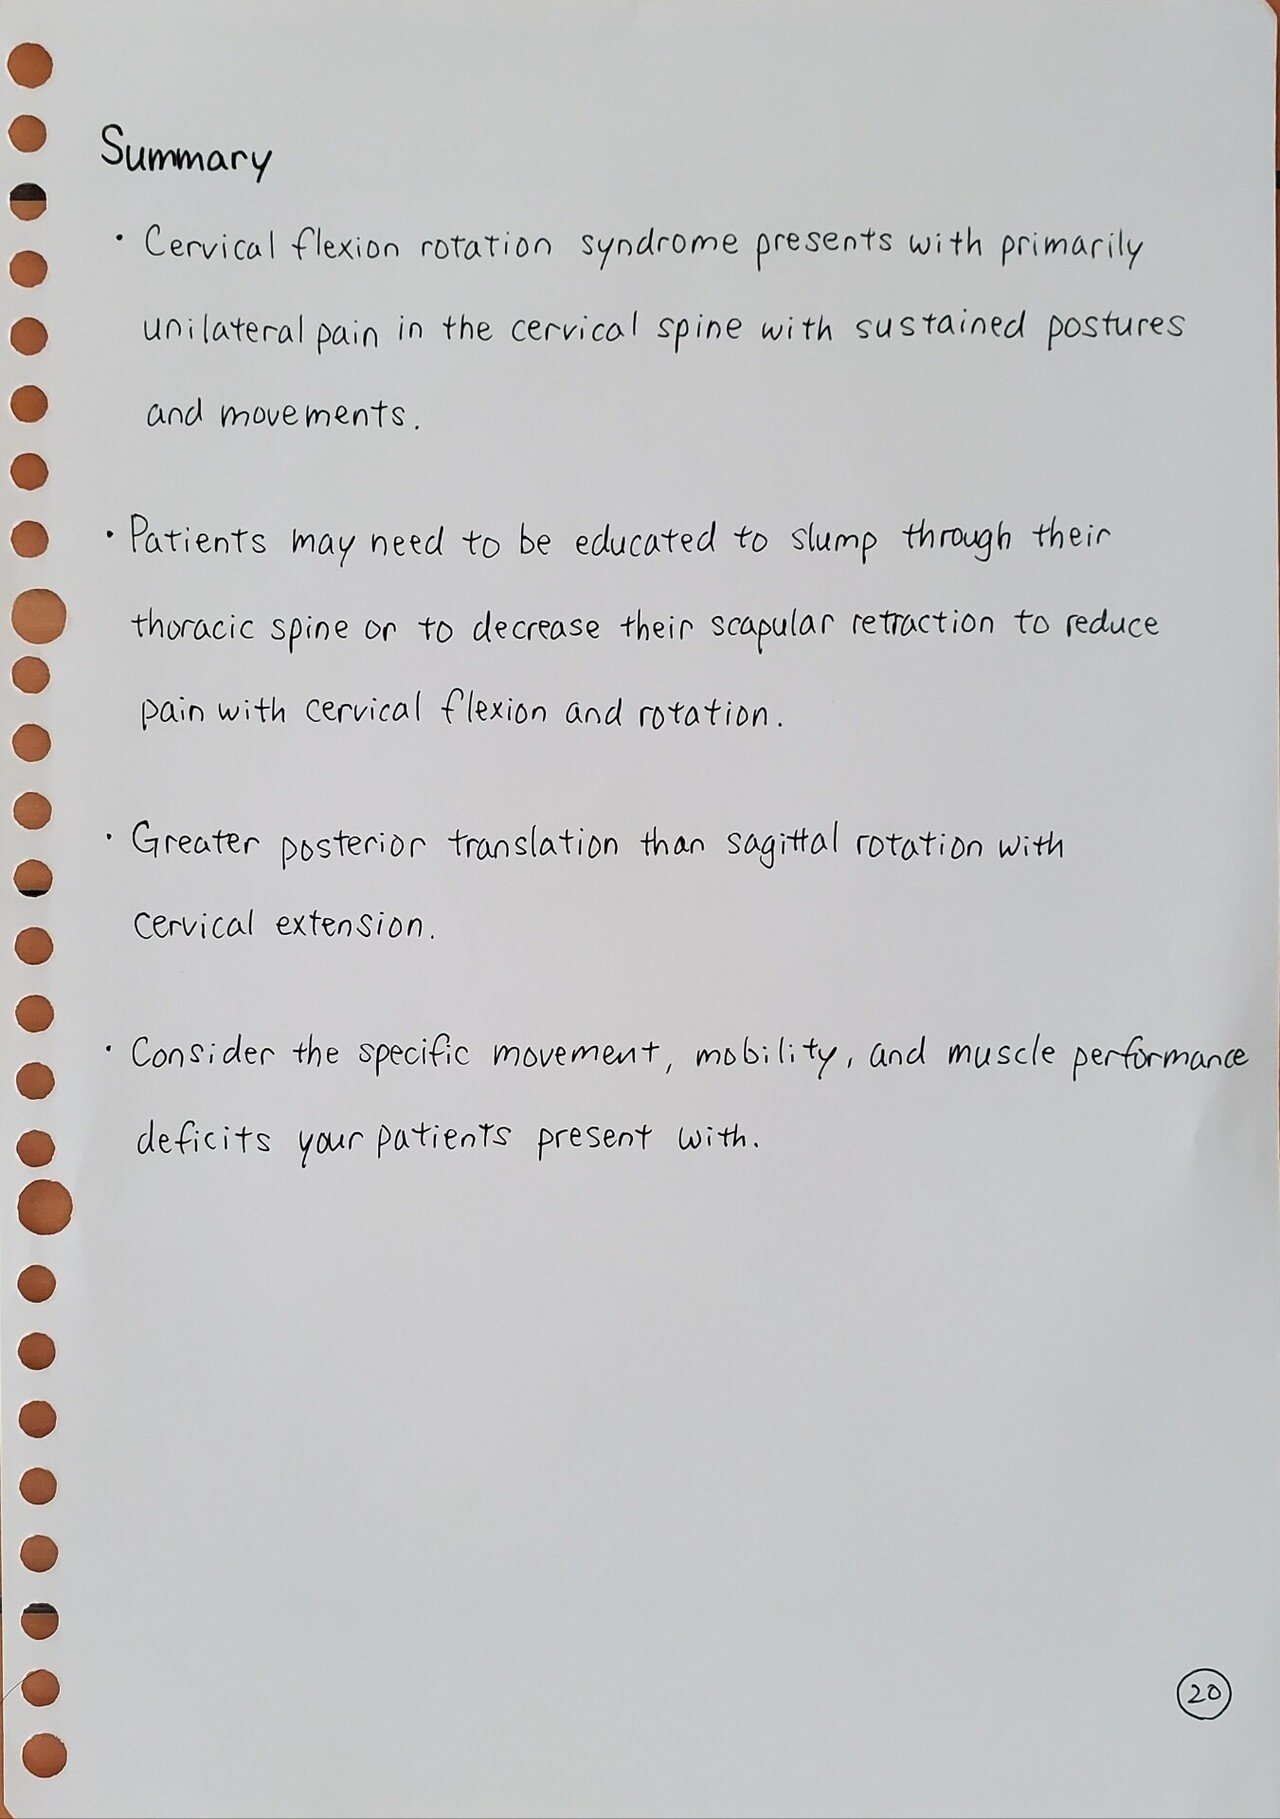 Summary
· Cervical flexion rotation syndrome presents with primarily
unilateral pain in the cervical spine with sustained postures
and movements.
· Patients may need to be educated to slump through their
thoracic spine or to decrease their scapular retraction to reduce
pain with cervical flexion and rotation.
· Greater posterior translation than sagittal rotation with
cervical extension.
· Consider the specific movement, mobility, and muscle performance
deficits your patients present with.
20